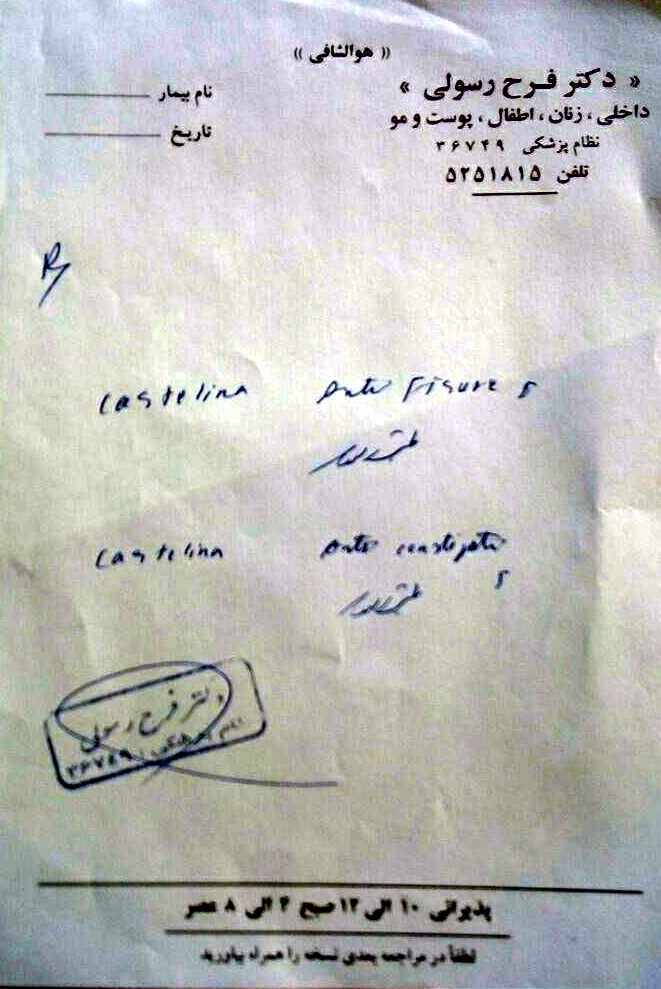 « هوالشافی »
« دکتر فرح رسولی »
داخلی ، زنان ، اطفال ، پوست و مو
نظام پزشکی ۳۶۷۴۹
تلفن ۵۲۵۱۸۱۵
نام بیمار
تاریخ
Rx
Castelina Anti Fisure
طبق دستور
Castelina Anti
طبق دستور
دکتر فرح رسولی
۳۶۷۴۹
پذیرائی ۱۰ الی ۱۲ صبح ۴ الی ۸ عصر
لطفاً در مراجعه بعدی نسخه را همراه بیاورید